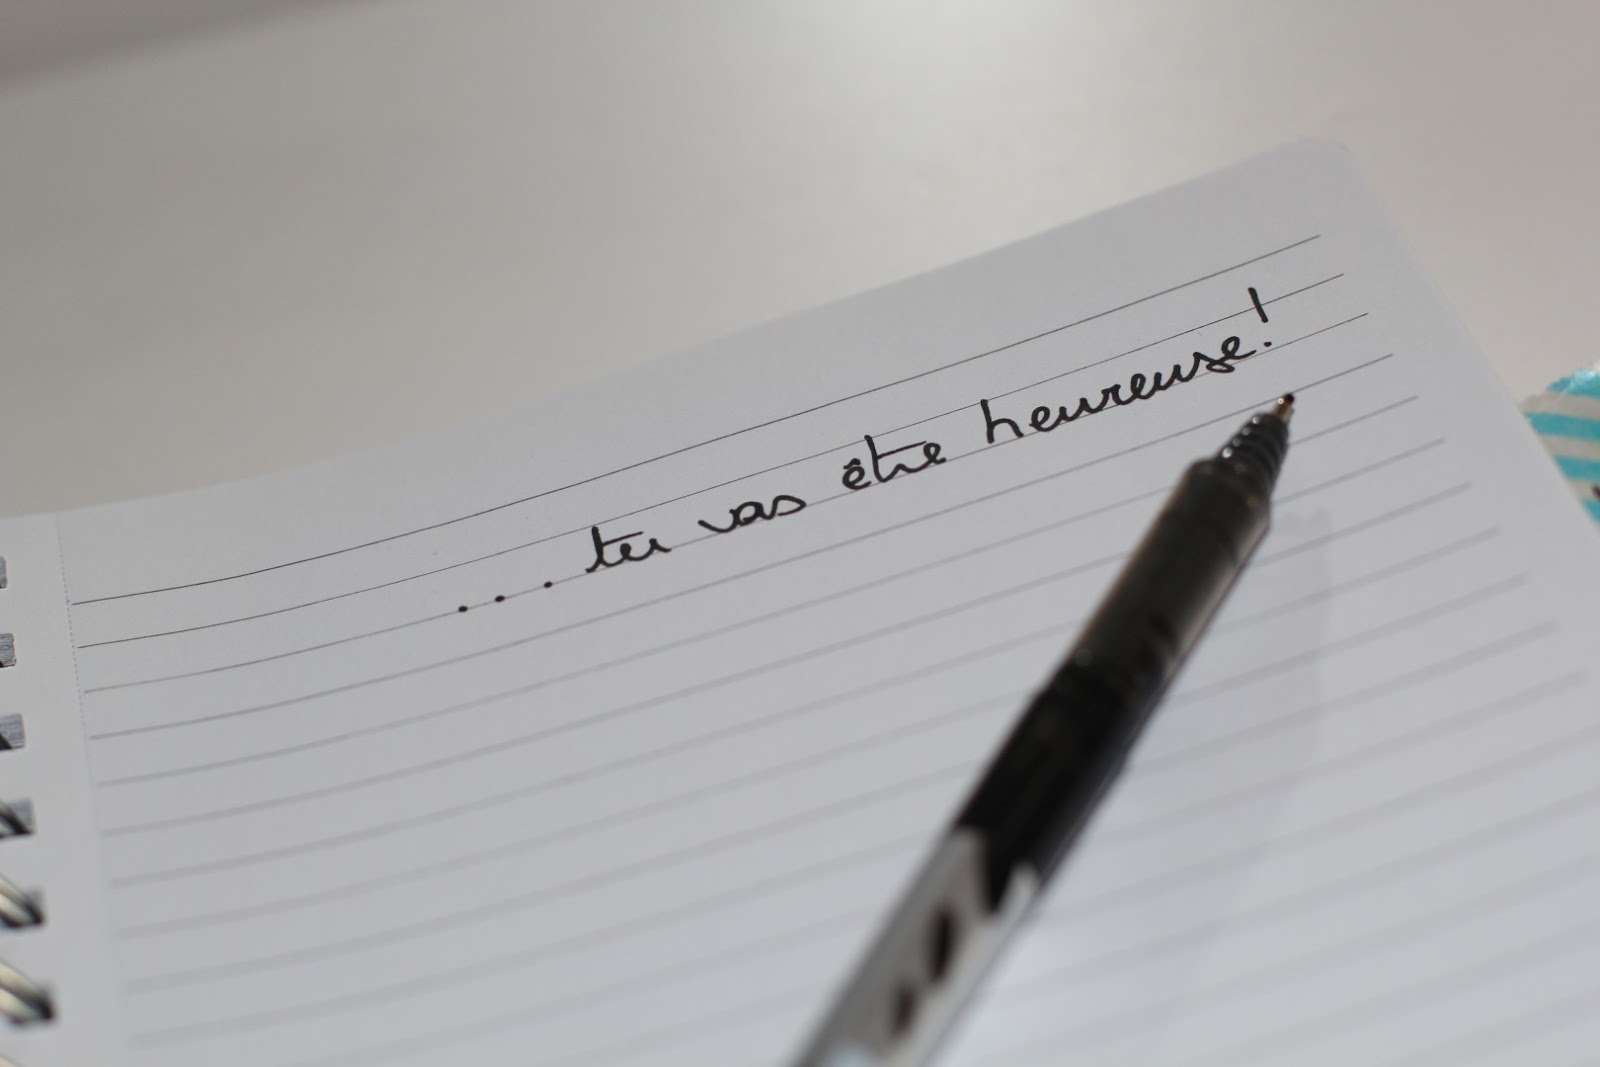 ... tu vas être heureuse!